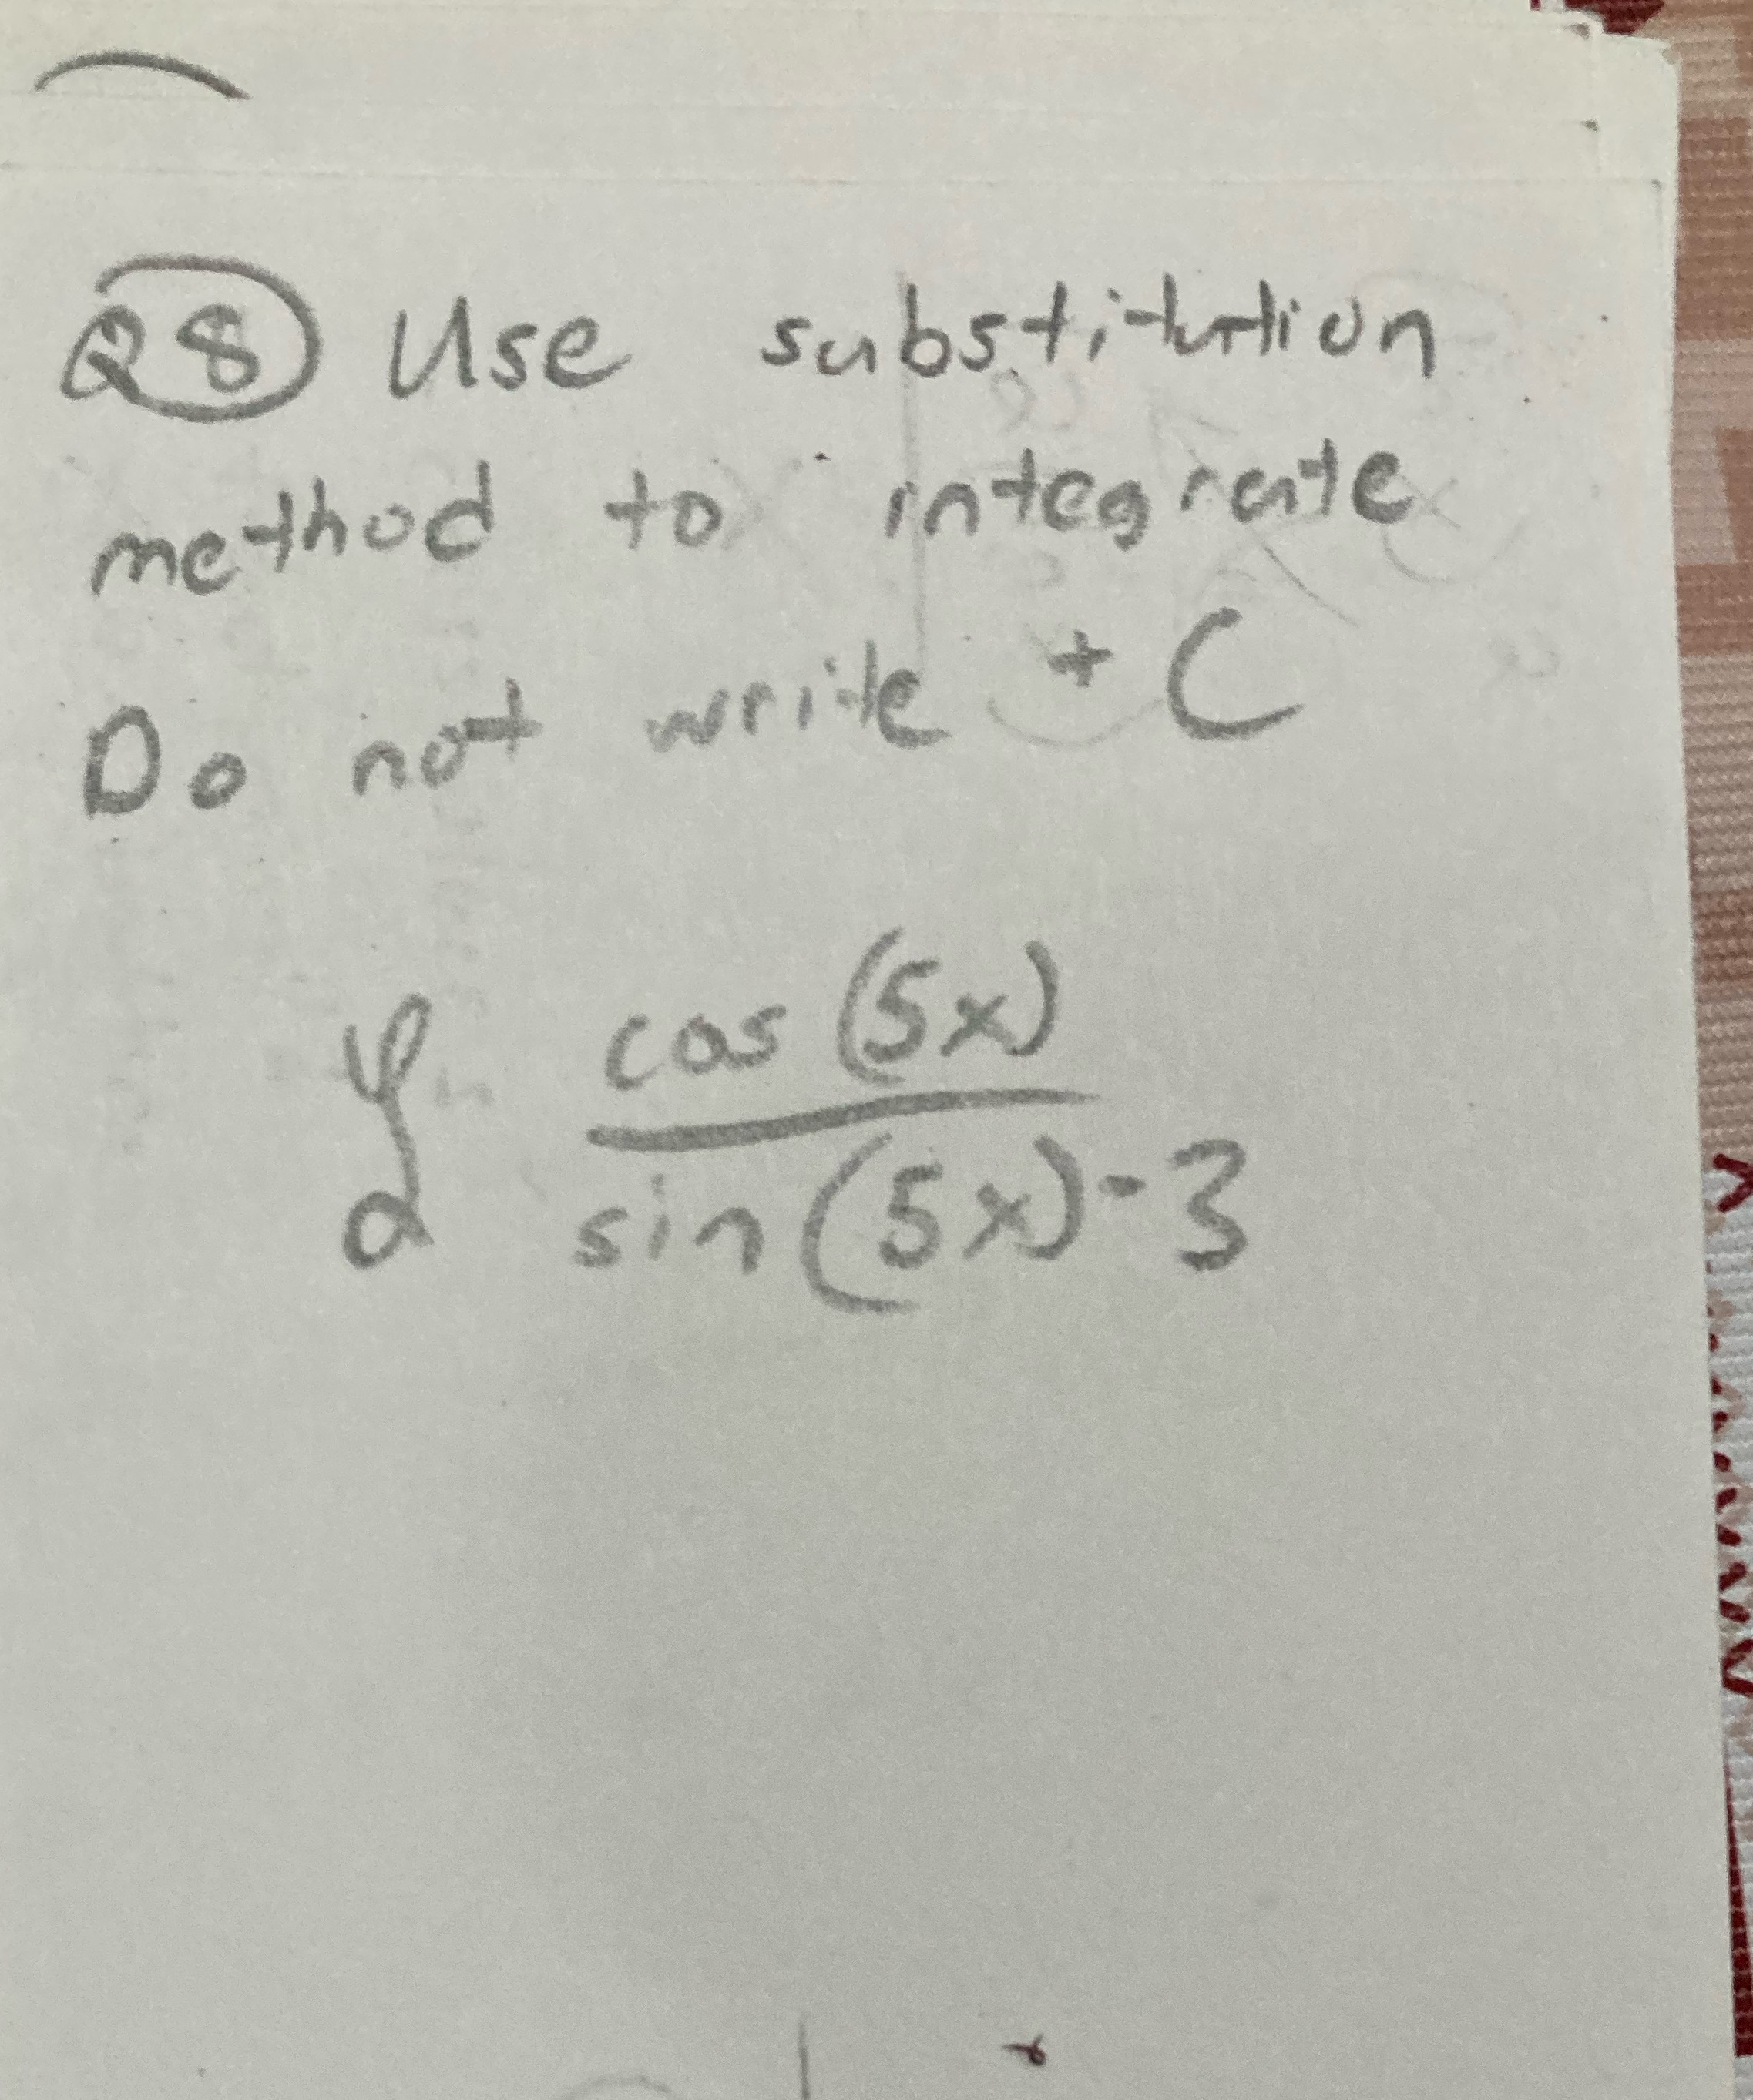 Q8 Use substitution
method to integrate
Do not write + C
∫ cos (5x)
sin (5x) - 3